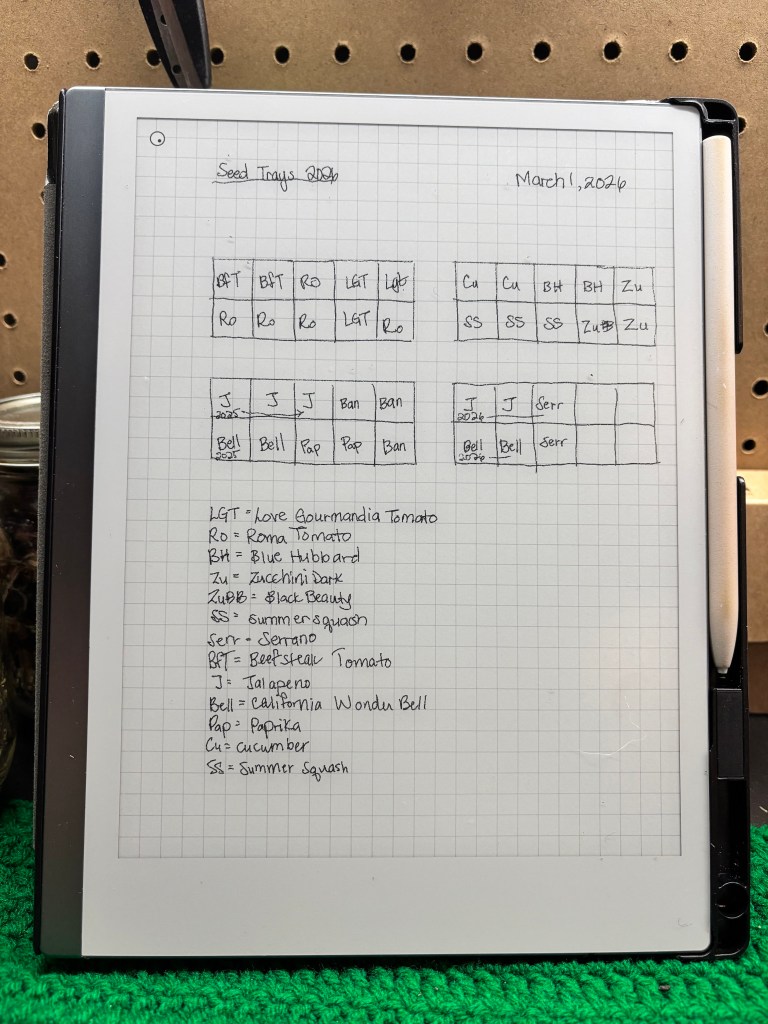 Seed Trays 2026
March 1, 2026
BfT BfT Ro LGT Lgt
Ro Ro Ro LGT Ro
Cu Cu BH BH Zu
SS SS SS ZuBB Zu
J J J Ban Ban
2025
Bell Bell Pap Pap Ban
2025
J J Serr
2026
Bell Bell Serr
2026
LGT = Love Gourmandia Tomato
Ro = Roma Tomato
BH = Blue Hubbard
Zu = Zucchini Dark
ZuBB = Black Beauty
SS = summer squash
Serr = Serrano
BfT = Beefsteak Tomato
J = Jalapeno
Bell = California Wonder Bell
Pap = Paprika
Cu = cucumber
SS = Summer Squash